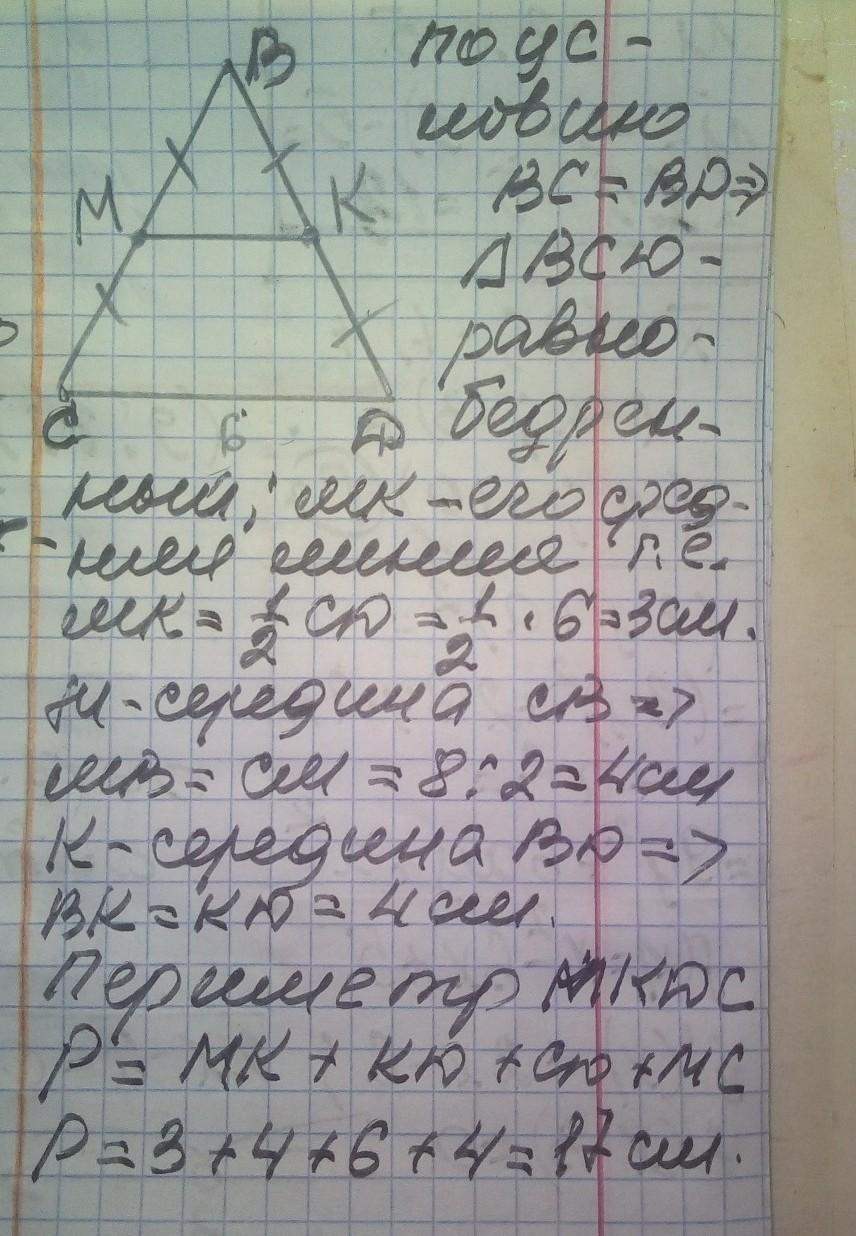 B
по ус-
ловию
M K
BC = BD =>
Δ BCD -
равно-
C 6 D
бедрен-
ный, MK - его сред-
няя линия т.е.
MK = 1/2 CD = 1/2 · 6 = 3 см.
M - середина CB =>
MB = CM = 8 : 2 = 4 см
K - середина BD =>
BK = KD = 4 см.
Периметр MKDC
P = MK + KD + CD + MC
P = 3 + 4 + 6 + 4 = 17 см.